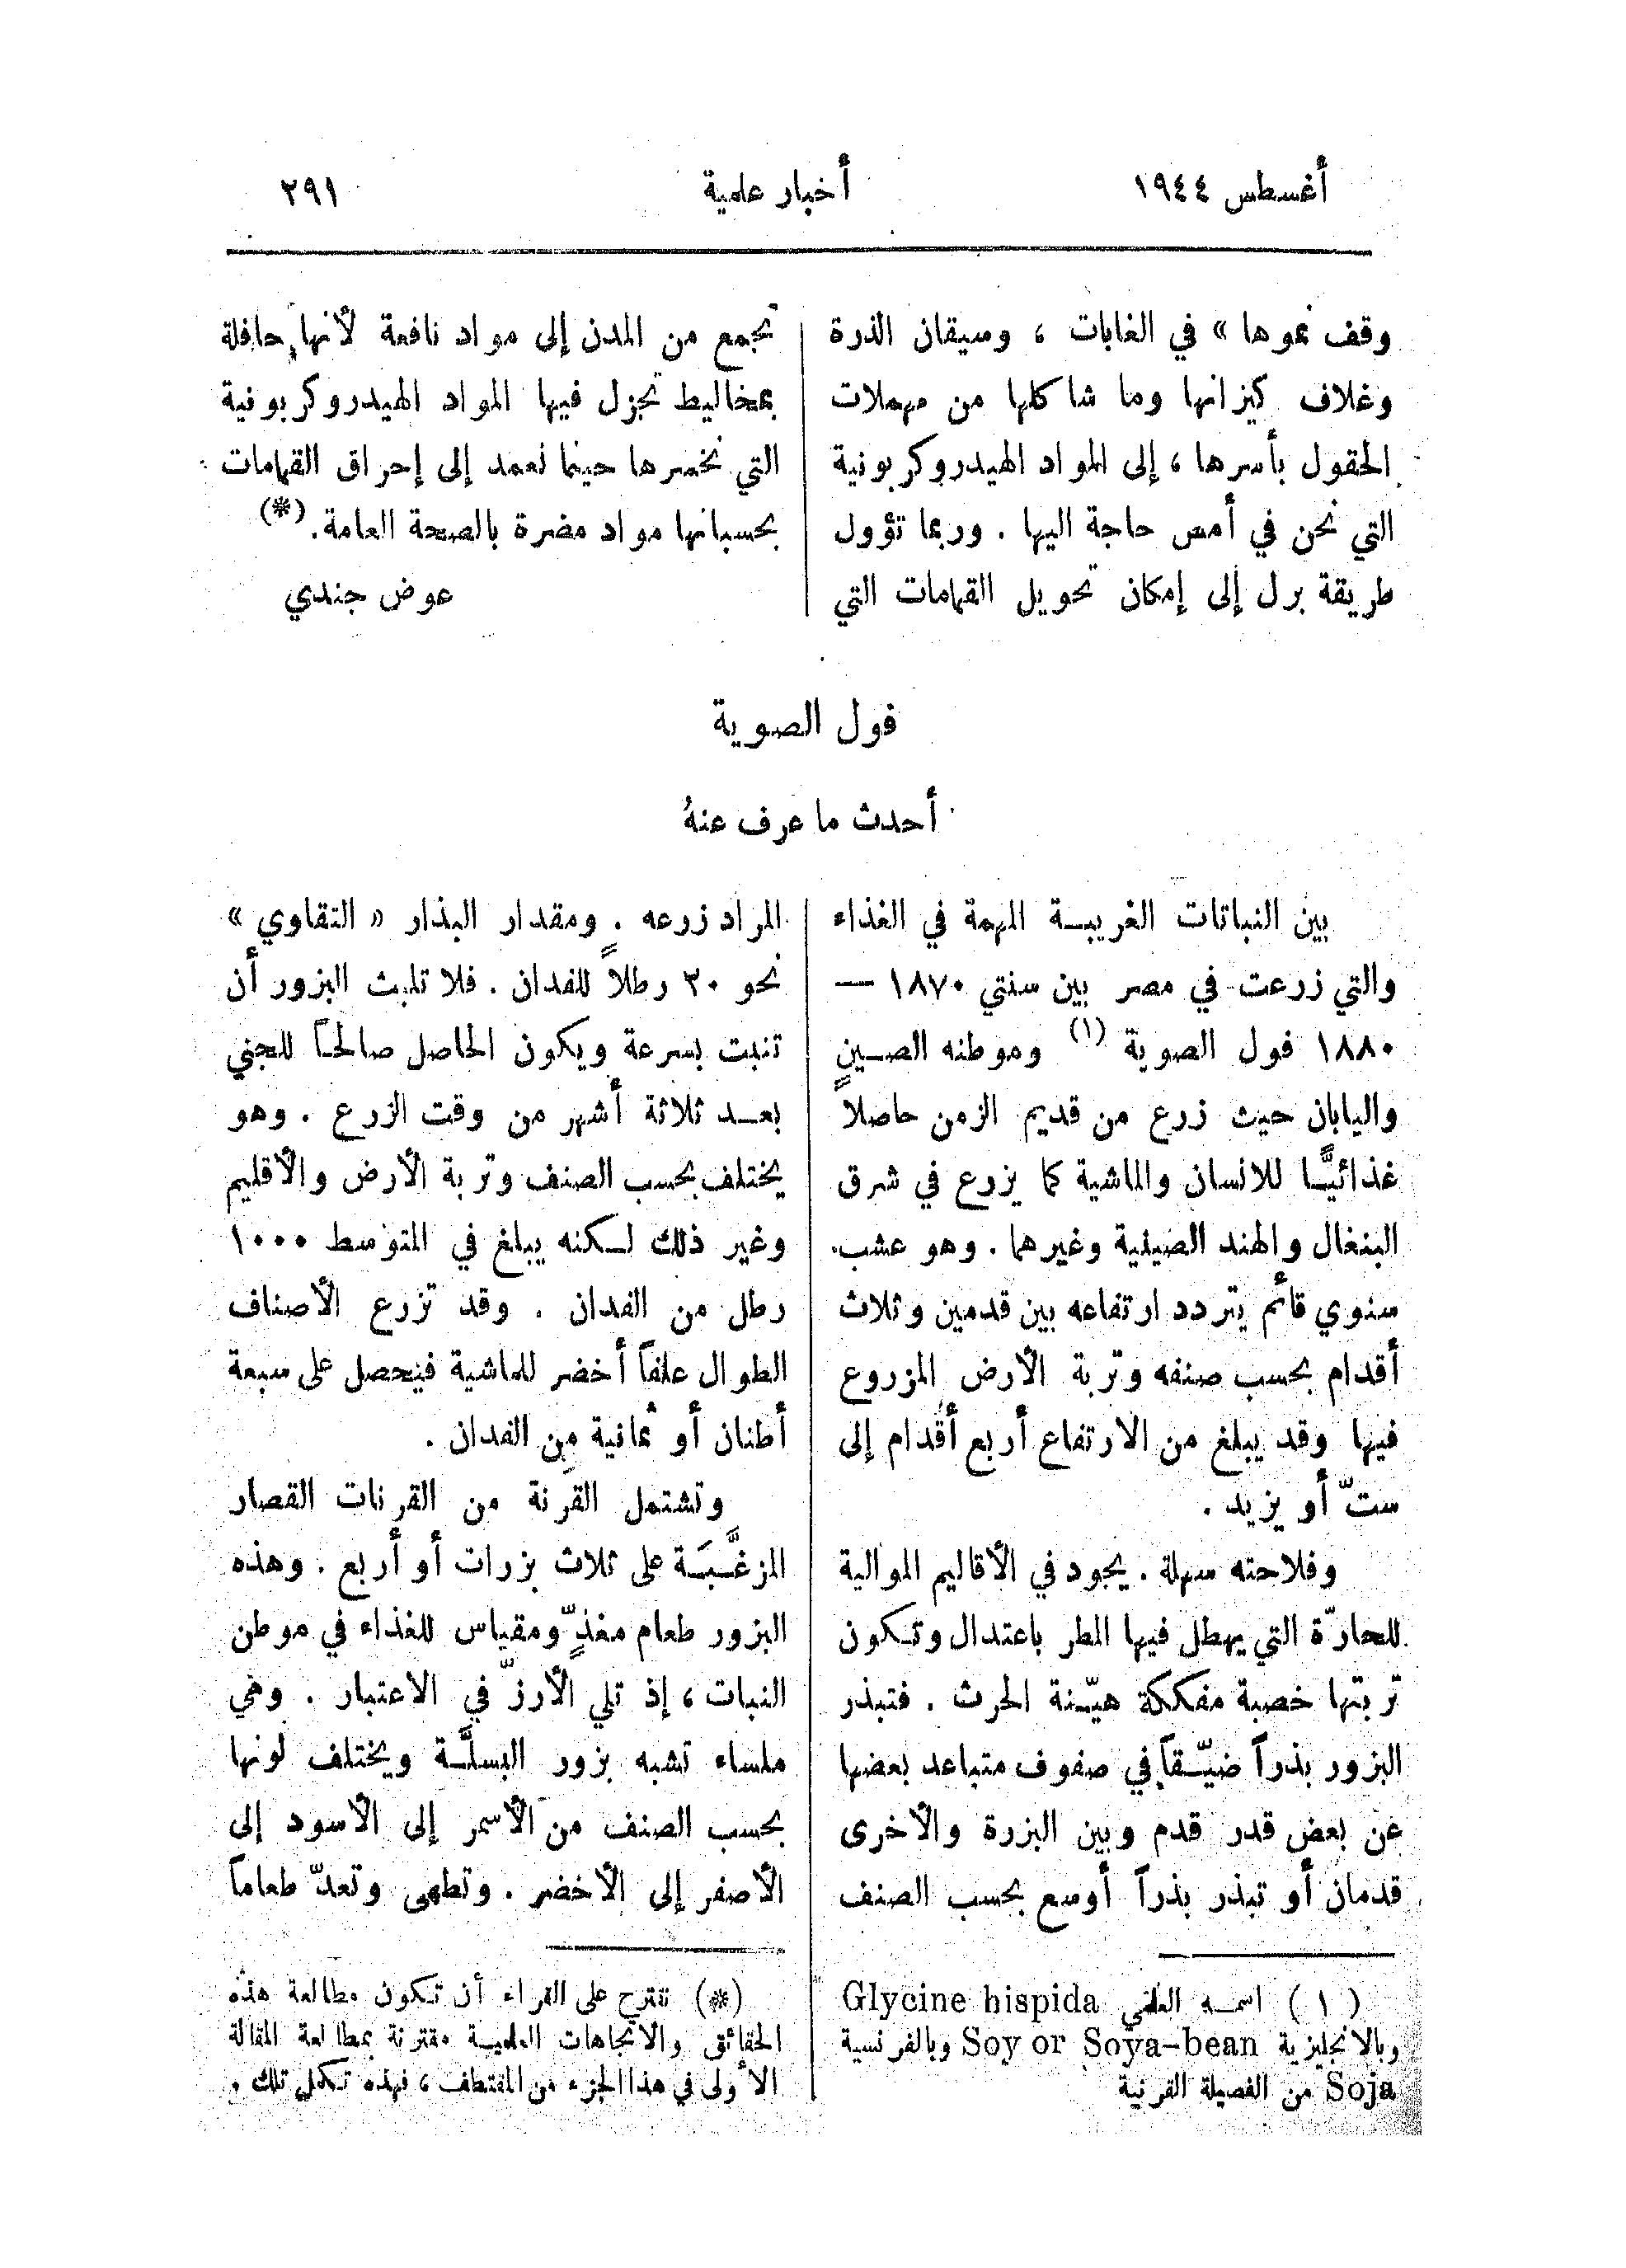 أغسطس ١٩٤٤
أخبار علمية
٢٩١
وقف نموها » في الغابات ، وسيقان الذرة
وغلاف كيزانها وما شاكلها من مهملات
الحقول بأسرها ، إلى المواد الهيدروكربونية
التي نحن في أمس حاجة اليها . وربما تؤول
طريقة برل إلى إمكان تحويل القمامات التي
تجمع من المدن إلى مواد نافعة لأنها حافلة
بمخاليط تجزل فيها المواد الهيدروكربونية
التي نخسرها حينما نعمد إلى إحراق القمامات
بحسبانها مواد مضرة بالصحة العامة. (*)
عوض جندي
فول الصوية
أحدث ما عرف عنهُ
بين النباتات الغريبة المهمة في الغذاء
والتي زرعت في مصر بين سنتي ١٨٧٠ —
١٨٨٠ فول الصوية (١) وموطنه الصين
واليابان حيث زرع من قديم الزمن حاصلاً
غذائيًّا للانسان والماشية كما يزرع في شرق
البنغال والهند الصينية وغيرهما . وهو عشب
سنوي قائم يتردد ارتفاعه بين قدمين وثلاث
أقدام بحسب صنفه وتربة الأرض المزروع
فيها وقد يبلغ من الارتفاع أربع أقدام إلى
ستّ أو يزيد .
وفلاحته سهلة . يجود في الأقاليم الموالية
للحارّة التي يهطل فيها المطر باعتدال وتكون
تربتها خصبة مفككة هيّنة الحرث . فتبذر
البزور بذراً ضيّقاً في صفوف متباعد بعضها
عن بعض قدر قدم وبين البزرة والأخرى
قدمان أو تبذر بذراً أوسع بحسب الصنف
المراد زرعه . ومقدار البذار « التقاوي »
نحو ٢٠ رطلاً للفدان . فلا تلبث البزور أن
تنبت بسرعة ويكون الحاصل صالحاً للجني
بعد ثلاثة أشهر من وقت الزرع . وهو
يختلف بحسب الصنف وتربة الأرض والأقليم
وغير ذلك لكنه يبلغ في المتوسط ١٠٠٠
رطل من الفدان . وقد تزرع الأصناف
الطوال علفاً أخضر للماشية فيحصل على سبعة
أطنان أو ثمانية من الفدان .
وتشتمل القرنة من القرنات القصار
المزغَّبَة على ثلاث بزرات أو أربع . وهذه
البزور طعام مغذٍّ ومقياس للغذاء في موطن
النبات ، إذ تلي الأرزّ في الاعتبار . وهي
ملساء تشبه بزور البسلَّة ويختلف لونها
بحسب الصنف من الأسمر إلى الأسود إلى
الأصفر إلى الأخضر . وتطهى وتعدّ طعاماً
(١) اسمه العلمي Glycine hispida
وبالانجليزية Soy or Soya-bean وبالفرنسية
Soja من الفصيلة القرنية
(*) نقترح على القراء أن تكون مطالعة هذه
الحقائق والاتجاهات العلمية مقترنة بمطالعة المقالة
الأولى في هذا الجزء من المقتطف ، فهذه تكمل تلك .